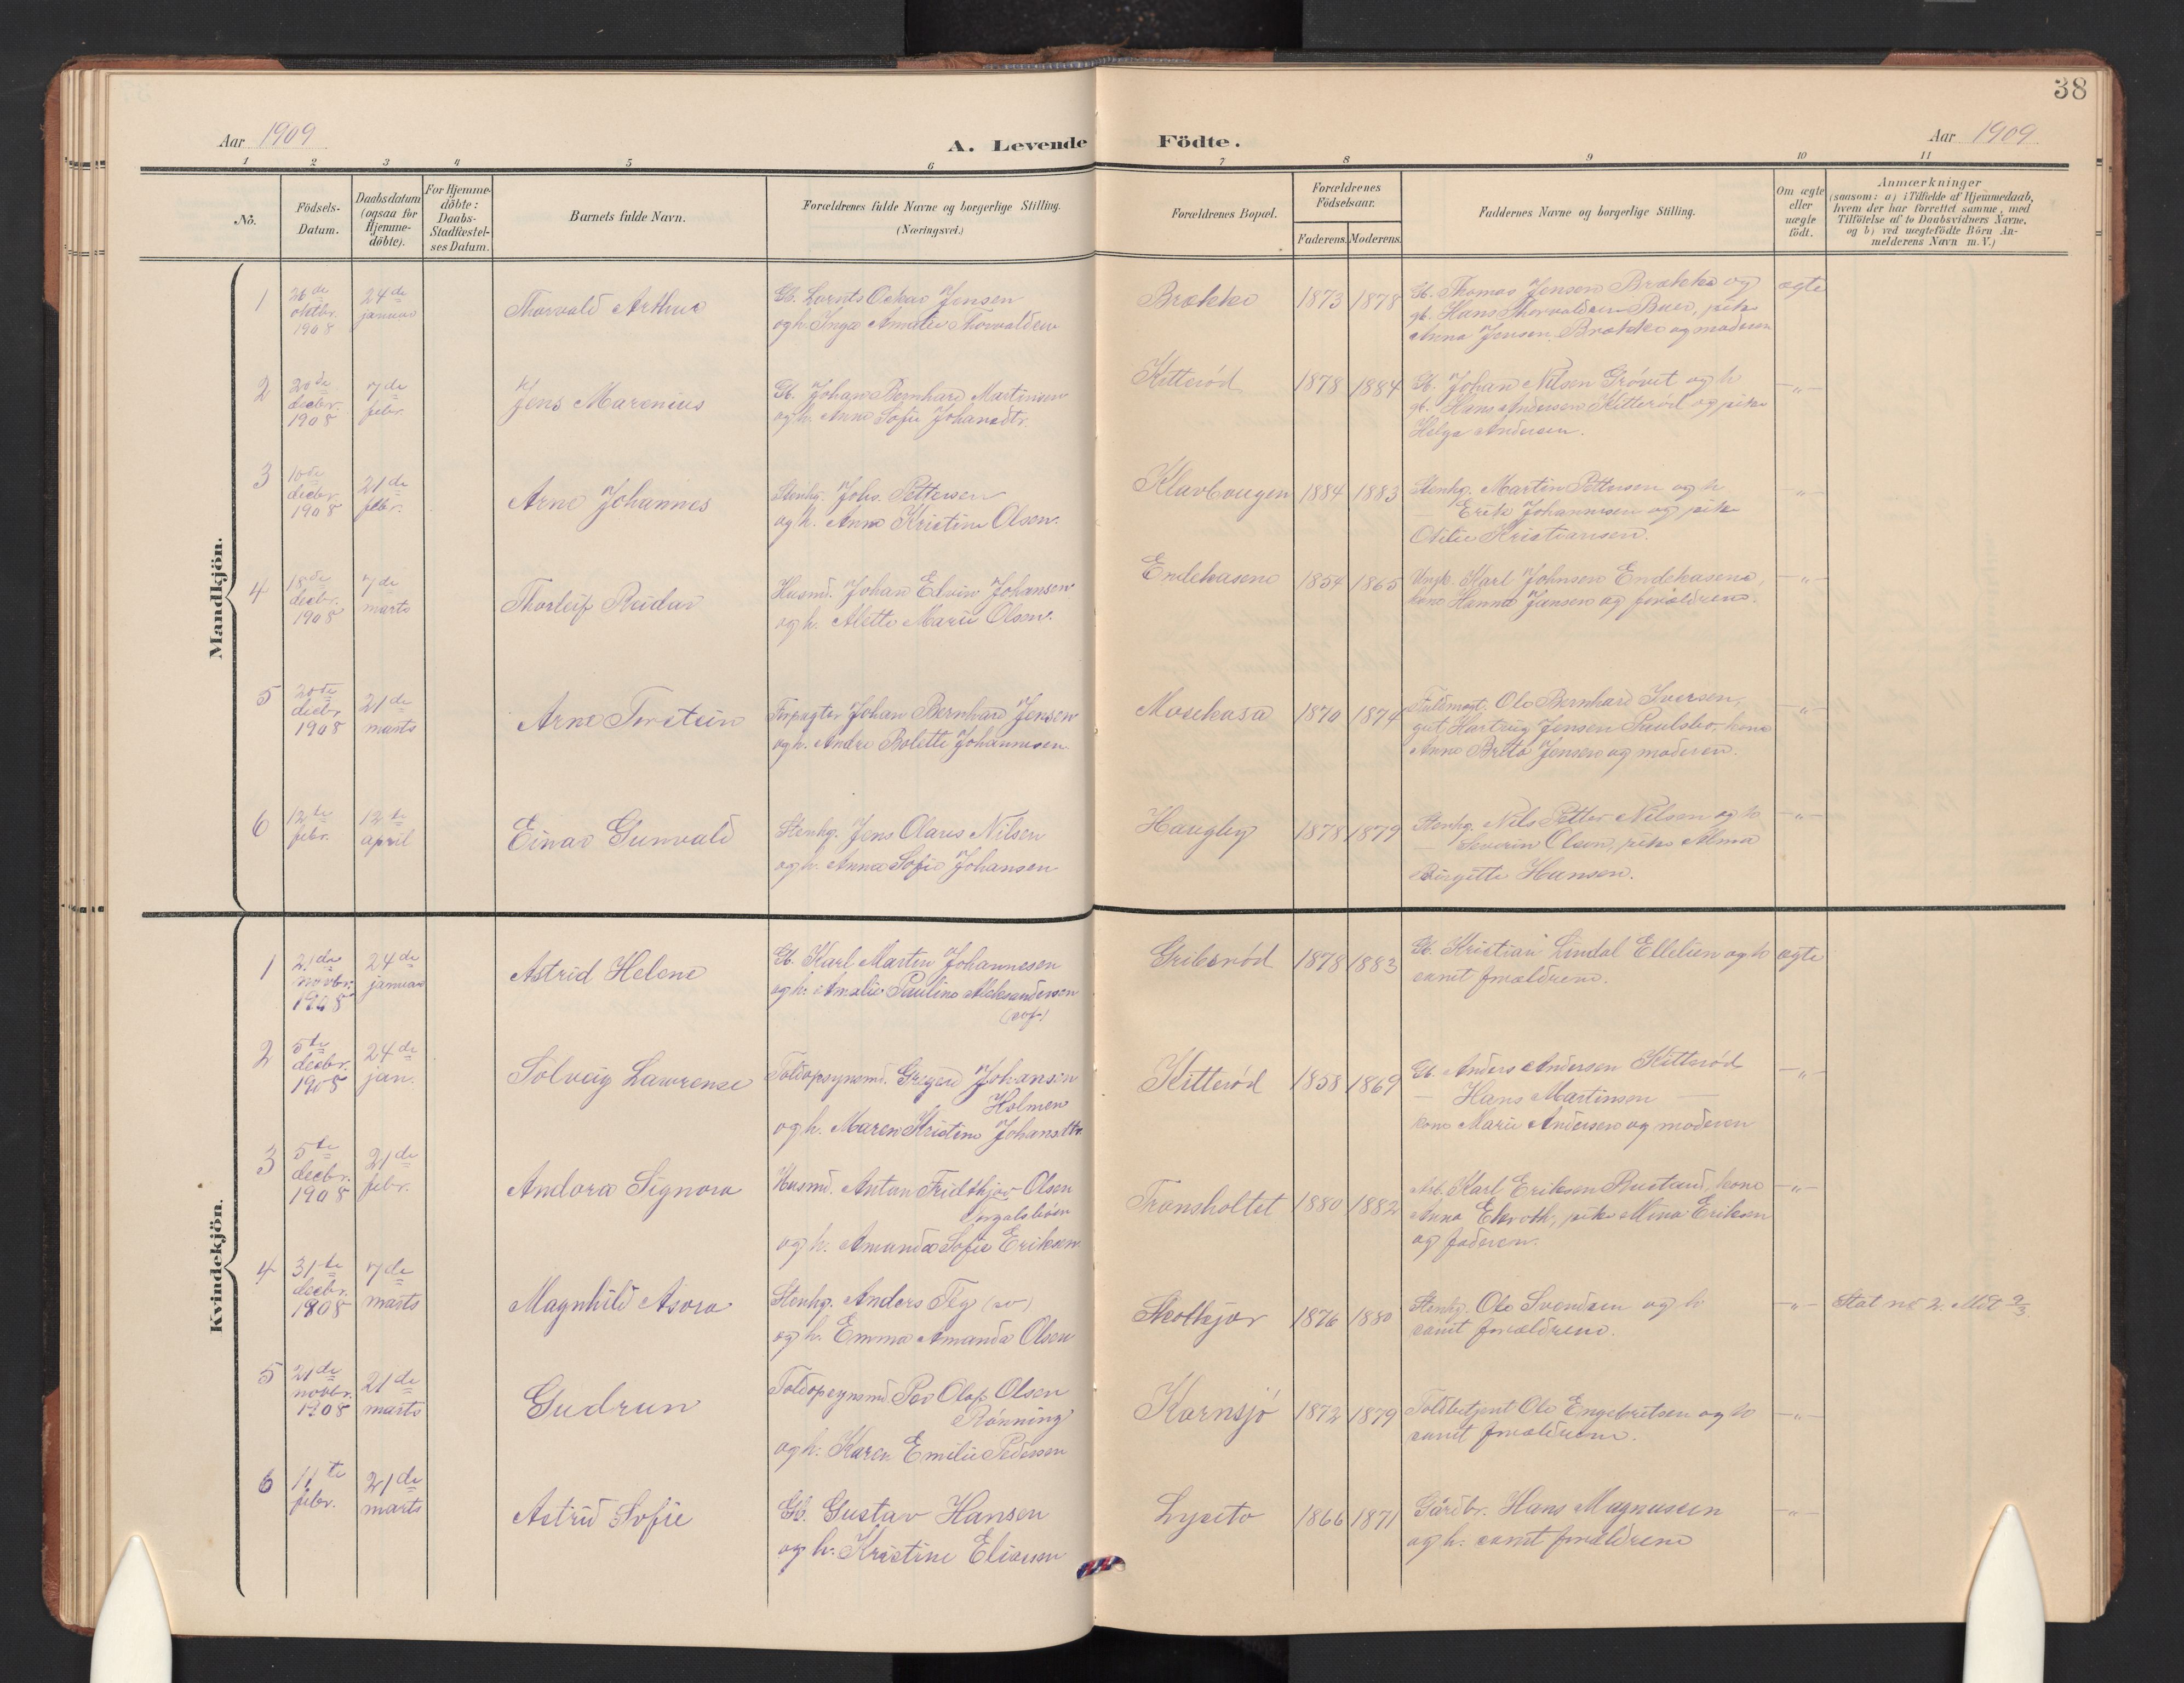 38
Aar 1909
A. Levende Födte.
Aar 1909
1 2 3 4 5 6 7 8 9 10 11
No.
Födsels-
Datum.
Daabsdatum
(ogsaa for
Hjemme-
döbte).
For Hjemme-
döbte:
Daabs-
Stadfestel-
ses Datum.
Barnets fulde Navn.
Forældrenes fulde Navne og borgerlige Stilling.
(Næringsvei.)
Forældrenes Bopæl.
Forældrenes
Födselsaar.
Faderens. Moderens.
Faddernes Navne og borgerlige Stilling.
Om ægte
eller
uægte
födt.
Anmærkninger
(saasom: a) i Tilfælde af Hjemmedaab,
hvem der har forrettet samme, med
Tilföielse af to Daabsvidners Navne,
og b) ved uægtefödte Börn An-
melderens Navn m. V.)
Mandkjön.
1
26de
oktbr.
1908
24de
januar
Thorvald Arthur
Gb. Lornts Oskar Jensen
og h. Inga Amalie Thorvaldsen
Brække
1873 1878
Gb. Thomas Jensen Brække og
gb. Hans Thorvaldsen Buer, pike
Anna Jensen Brække og moderen
ægte
2
20de
decbr.
1908
7de
febr.
Jens Marenius
Gb. Johan Bernhard Martinsen
og h. Anna Sofie Johansdtr.
Kitteröd
1878 1884
Gb. Johan Nilsen Grövet og h
gb. Hans Andersen Kitteröd og pike
Helga Andersen.
—"—
3
10de
decbr.
1908
21de
febr.
Arne Johannes
Stenhg. Johs. Pettersen
og h. Anna Kristine Olsen.
Klavbougen
1884 1883
Stenhg. Martin Pettersen og h
— Erik Johannesen og pike
Otilie Kristiansen.
—"—
4
18de
decbr.
1908
7de
marts
Thorleif Reidar
Husmd. Johan Edvin Johansen
og h. Alette Marie Olsen.
Endekasene
1854 1865
Ungk. Karl Johnsen Endekasene,
kone Hanna Jansen og forældrene.
—"—
5
20de
decbr.
1908
21de
marts
Arne Torstein
Forpagter Johan Bernhard Jensen
og h. Andre Bolette Johannesen
Mosekasa
1870 1874
Fuldmægt. Ole Bernhard Iversen,
gut Hartvig Jensen Paulsbo, kone
Anne Brita Jensen og moderen.
—"—
6
12te
febr.
12te
april
Einar Gunvald
Stenhg. Jens Olaves Nilsen
og h. Anna Sofie Johansen
Haugby
1878 1879
Stenhg. Nils Petter Nilsen og h
— Severin Olsen, pike Alma
Birgitte Hansen.
—"—
Kvindekjön.
1
21de
novbr.
1908
24de
januar
Astrid Helene
Gb. Karl Martin Johannesen
og h. Amalie Pauline Aleksandersen
Griberöd
1878 1883
Gb. Kristian Lindal Ellelien og h
samt forældrene.
ægte
2
5te
decbr.
1908
24de
jan.
Solveig Lawrense
Toldopsynsmd. Gregerd Johansen
Holmen
og h. Maren Kristine Johansdtr
Kitteröd
1858 1869
Gb. Anders Andersen Kitteröd
— Hans Martinsen —
kone Marie Andersen og moderen
—"—
3
5te
decbr.
1908
21de
febr.
Andora Signora
Husmd. Anton Fridthjov Olsen
og h. Amanda Sofie Eriksen
Transholtet
1880 1882
Arb. Karl Eriksen Bustad, kone
Anna Ekroth, pike Mina Eriksen
og faderen.
—"—
4
31te
decbr.
1908
7de
marts
Magnhild Asora
Stenhg. Anders Teg (sv)
og h. Emma Amanda Olsen
Skotkjær
1876 1880
Stenhg. Ole Svendsen og h.
samt forældrene.
—"—
Stat no 2. Mdt 9/3.
5
21de
novbr.
1908
21de
marts
Gudrun
Toldopsynsmd. Per Olaf Olsen
Rönning
og h. Karen Emilie Pedersen
Kornsjö
1872 1879
Toldbetjent Ole Engebretsen og h
samt forældrene.
—"—
6
11te
febr.
21de
marts
Astrid Sofie
Gb. Gustav Hansen
og h. Kristine Eliasen
Lyseto
1866 1871
Gårdbr. Hans Magnussen
og h. samt forældrene
—"—